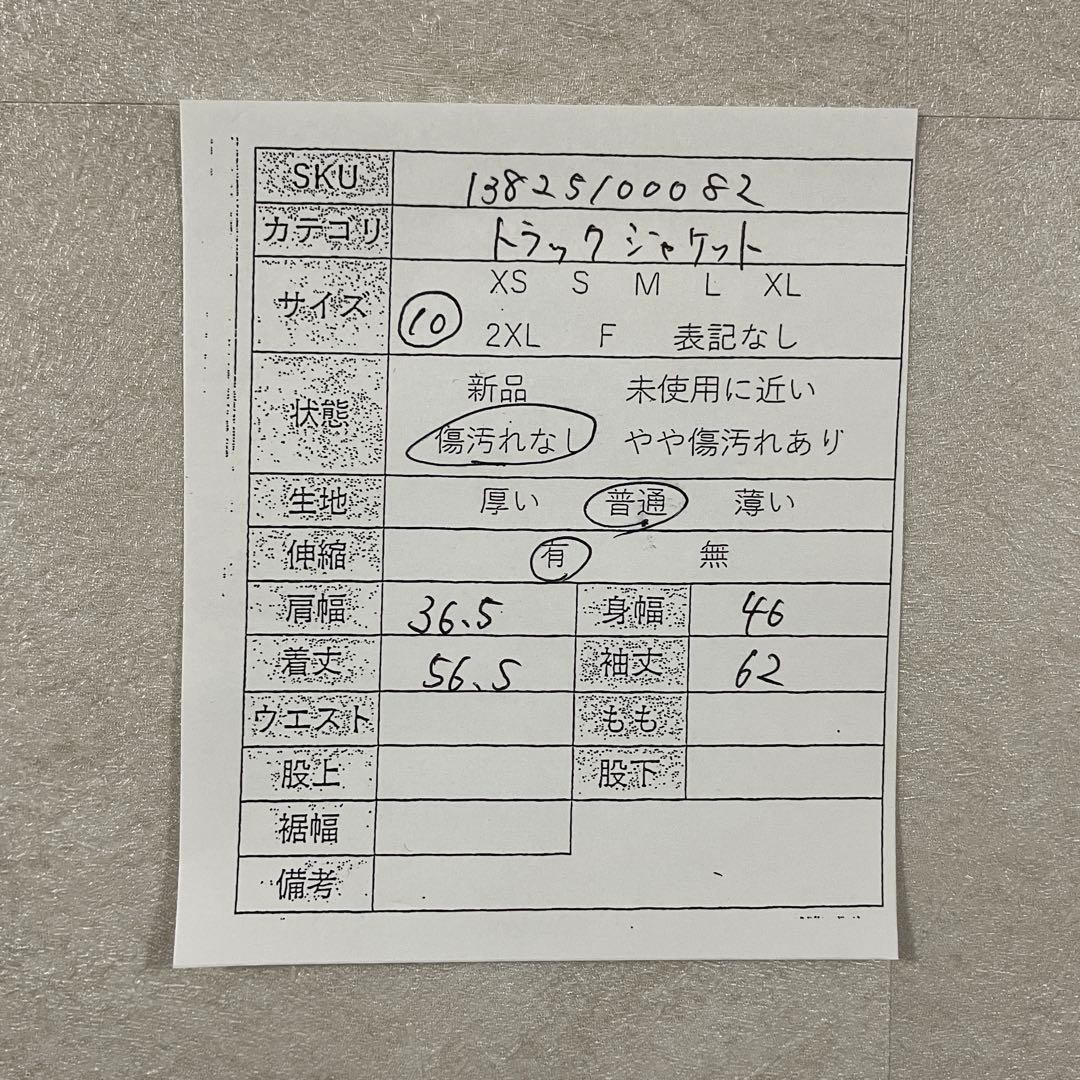 SKU 13825100082
カテゴリ トラックジャケット
サイズ XS S M L XL
10 2XL F 表記なし
状態 新品 未使用に近い
傷汚れなし やや傷汚れあり
生地 厚い 普通 薄い
伸縮 有 無
肩幅 36.5 身幅 46
着丈 56.5 袖丈 62
ウエスト もも
股上 股下
裾幅
備考